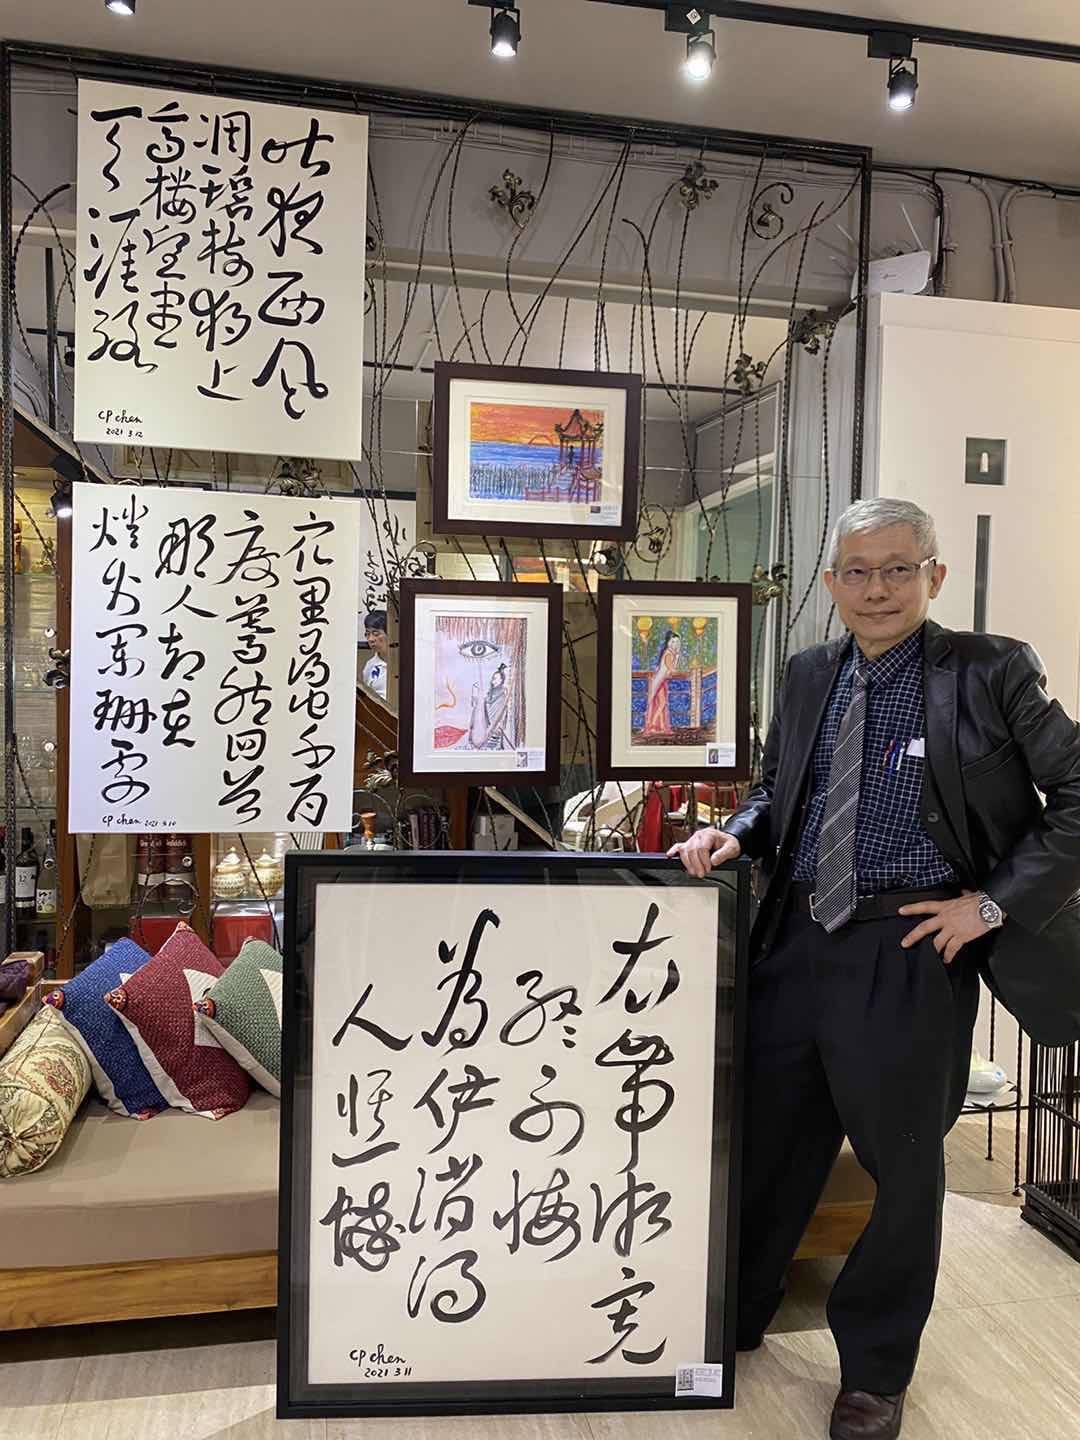 昨夜西風
凋碧樹獨上
高樓望盡
天涯路
CP chen
2021 3 12
眾里尋他千百
度驀然回首
那人卻在
燈火闌珊處
CP chen 2021 3.10
衣帶漸寬
終不悔
為伊消得
人憔悴
CP chen
2021 3 11